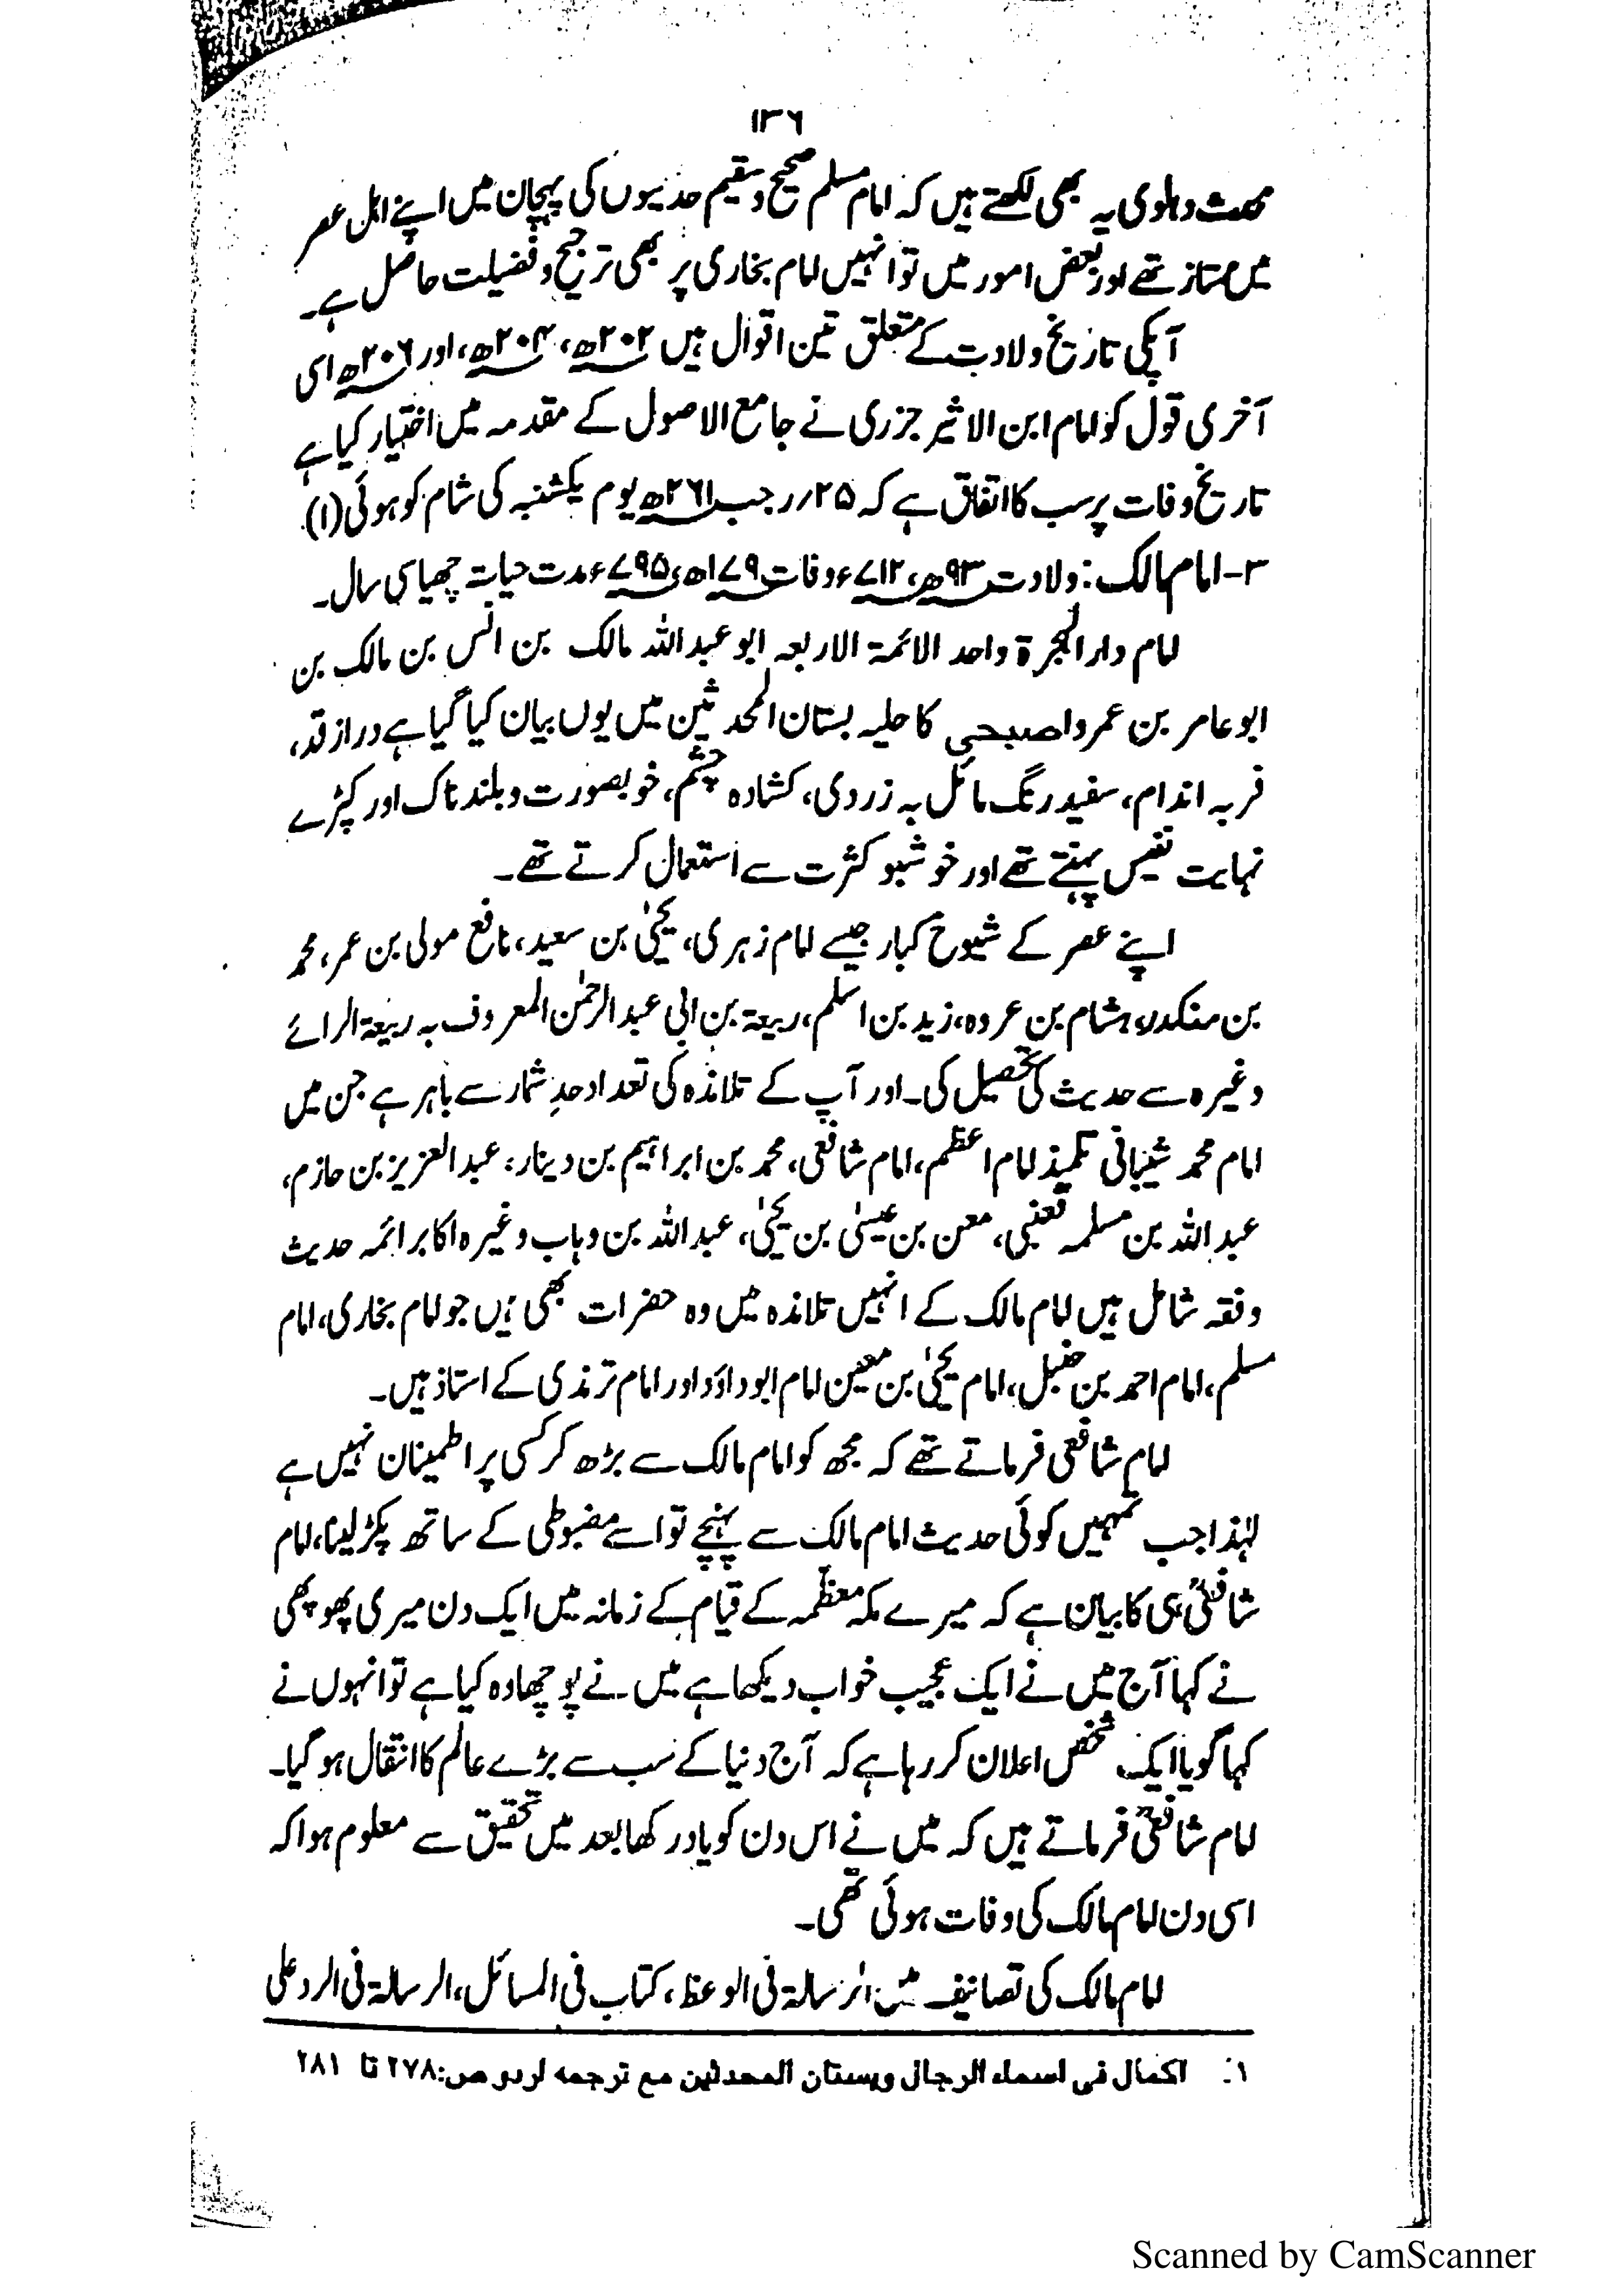 ۱۳۶
محدث دہلوی یہ بھی لکھتے ہیں کہ امام مسلم صحیح و سقیم حدیثوں کی پہچان میں اپنے اہل عصر
میں ممتاز تھے اور بعض امور میں تو انہیں امام بخاری پر بھی ترجیح و فضیلت حاصل ہے۔
آپکی تاریخ ولادت کے متعلق تین اقوال ہیں ۲۰۲ھ، ۲۰۴ھ، اور ۲۰۶ھ اسی
آخری قول کو امام ابن الاثیر جزری نے جامع الاصول کے مقدمہ میں اختیار کیا ہے
تاریخ وفات پر سب کا اتفاق ہے کہ ۲۵؍رجب ۲۶۱ھ یوم یکشنبہ کی شام کو ہوئی (۱)
۳-امام مالک: ولادت ۹۳ھ، ۷۱۲ء وفات ۱۷۹ھ، ۷۹۵ء مدت حیات چھیاسی سال۔
امام دار الہجرۃ واحد الائمۃ الاربعہ ابو عبد اللہ مالک بن انس بن مالک بن
ابو عامر بن عمرو اصبحی کا حلیہ بستان المحدثین میں یوں بیان کیا گیا ہے دراز قد،
فربہ اندام، سفید رنگ مائل بہ زردی، کشادہ چشم، خوبصورت و بلند ناک اور کپڑے
نہایت نفیس پہنتے تھے اور خوشبو کثرت سے استعمال کرتے تھے۔
اپنے عصر کے شیوخ کبار جیسے امام زہری، یحییٰ بن سعید، نافع مولی بن عمر، محمد
بن منکدر، ہشام بن عروہ، زید بن اسلم، ربیعۃ بن ابی عبد الرحمٰن المعروف بہ ربیعۃ الرائے
وغیرہ سے حدیث کی تحصیل کی۔ اور آپ کے تلامذہ کی تعداد حدِ شمار سے باہر ہے جن میں
امام محمد شیبانی تلمیذ امام اعظم، امام شافعی، محمد بن ابراہیم بن دینار، عبد العزیز بن حازم،
عبد اللہ بن مسلمہ قعنبی، معن بن عیسیٰ بن یحییٰ، عبد اللہ بن وہاب وغیرہ اکابر ائمہ حدیث
وفقہ شامل ہیں امام مالک کے انہیں تلامذہ میں وہ حضرات بھی ہیں جو امام بخاری، امام
مسلم، امام احمد بن حنبل، امام یحییٰ بن معین امام ابو داؤد اور امام ترمذی کے استاذ ہیں۔
امام شافعی فرماتے تھے کہ مجھ کو امام مالک سے بڑھ کر کسی پر اطمینان نہیں ہے
لہٰذا جب تمہیں کوئی حدیث امام مالک سے پہنچے تو اسے مضبوطی کے ساتھ پکڑ لینا، امام
شافعیؒ ہی کا بیان ہے کہ میرے مکہ معظمہ کے قیام کے زمانہ میں ایک دن میری پھوپھی
نے کہا آج میں نے ایک عجیب خواب دیکھا ہے میں نے پوچھا وہ کیا ہے تو انہوں نے
کہا گویا ایک شخص اعلان کر رہا ہے کہ آج دنیا کے سب سے بڑے عالم کا انتقال ہو گیا۔
امام شافعیؒ فرماتے ہیں کہ میں نے اس دن کو یاد رکھا بعد میں تحقیق سے معلوم ہوا کہ
اسی دن امام مالک کی وفات ہوئی تھی۔
امام مالک کی تصانیف میں الرسالۃ فی الوعظ، کتاب فی المسائل، الرسالۃ فی الرد علی
۱: اکمال فی اسماء الرجال وبستان المحدثین مع ترجمه اردو ص: ۲۷۸ تا ۲۸۱
Scanned by CamScanner